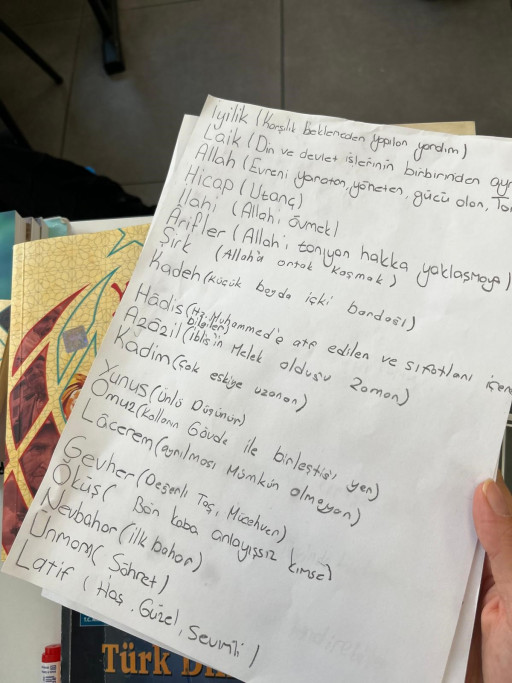 İyilik (Karşılık beklemeden yapılan yardım)
Laik (Din ve devlet işlerinin birbirinden ayr
Allah (Evreni yaratan, yöneten, gücü olan, Tan
Hicap (Utanç)
İlahi (Allah'ı övmek)
Arifler (Allah'ı tanıyan hakka yaklaşmaya)
Şirk (Allah'a ortak koşmak)
Kadeh (küçük boyda içki bardağı)
Hâdis (Hz. Muhammed'e atf edilen ve sıfatlanı içeren
bilgiler)
Azâzil (iblis'in Melek olduğu zaman)
Kadim (çok eskiye uzanan)
Yunus (Ünlü Düşünür)
Omuz (Kolların Gövde ile birleştiği yer)
Lâcerem (ayrılması Mümkün olmayan)
Gevher (Değerli Taş, Mücehver)
Öküş ( Bön kaba anlayışsız kimse)
Nevbahar (ilk bahar)
Ünmam (Şöhret)
Latif (Hoş, Güzel, Sevimli)
Türk